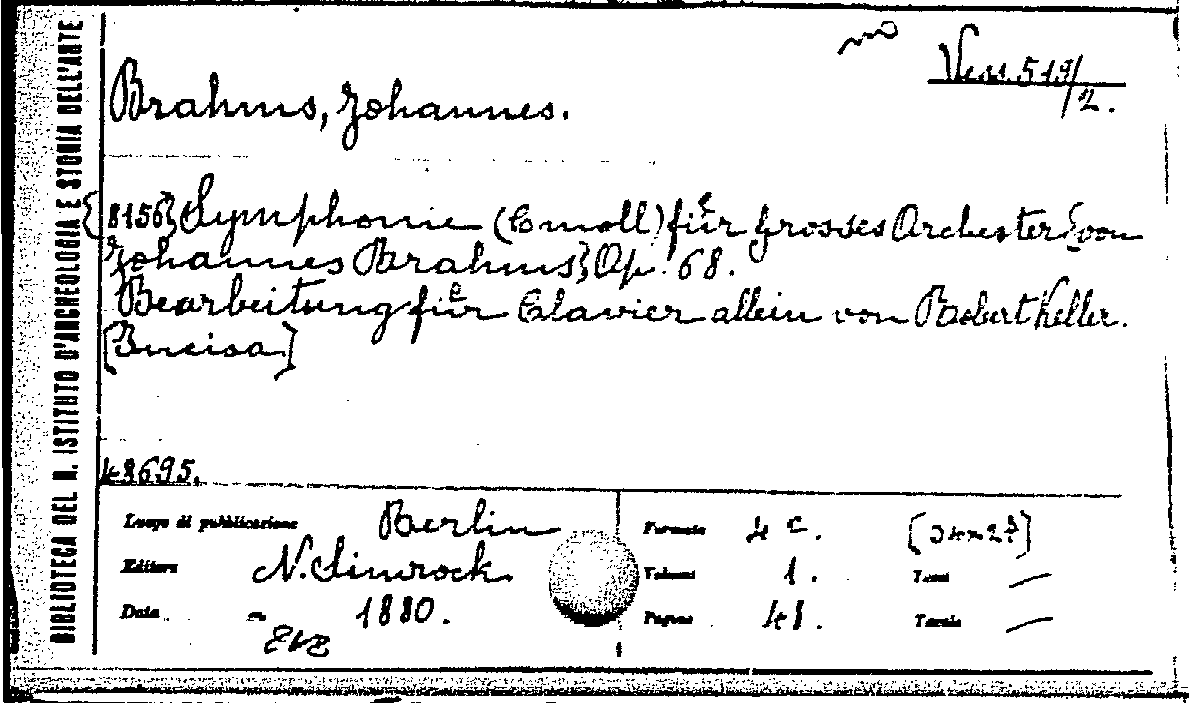 BIBLIOTECA DEL R. ISTITUTO D'ARCHEOLOGIA E STORIA DELL'ARTE
Vess. 519/2.
Brahms, Johannes.
{8156} Symphonie (C moll) für grosses Orchester {von
Johannes Brahms} Op. 68.
Bearbeitung für Clavier allein von Robert Keller.
[Incisa]
48695.
Luogo di pubblicazione Berlin
Editore N. Simrock.
Data 1880.
Formato 4°.
Volumi 1. Tomi —
Pagine 48. Tavole —